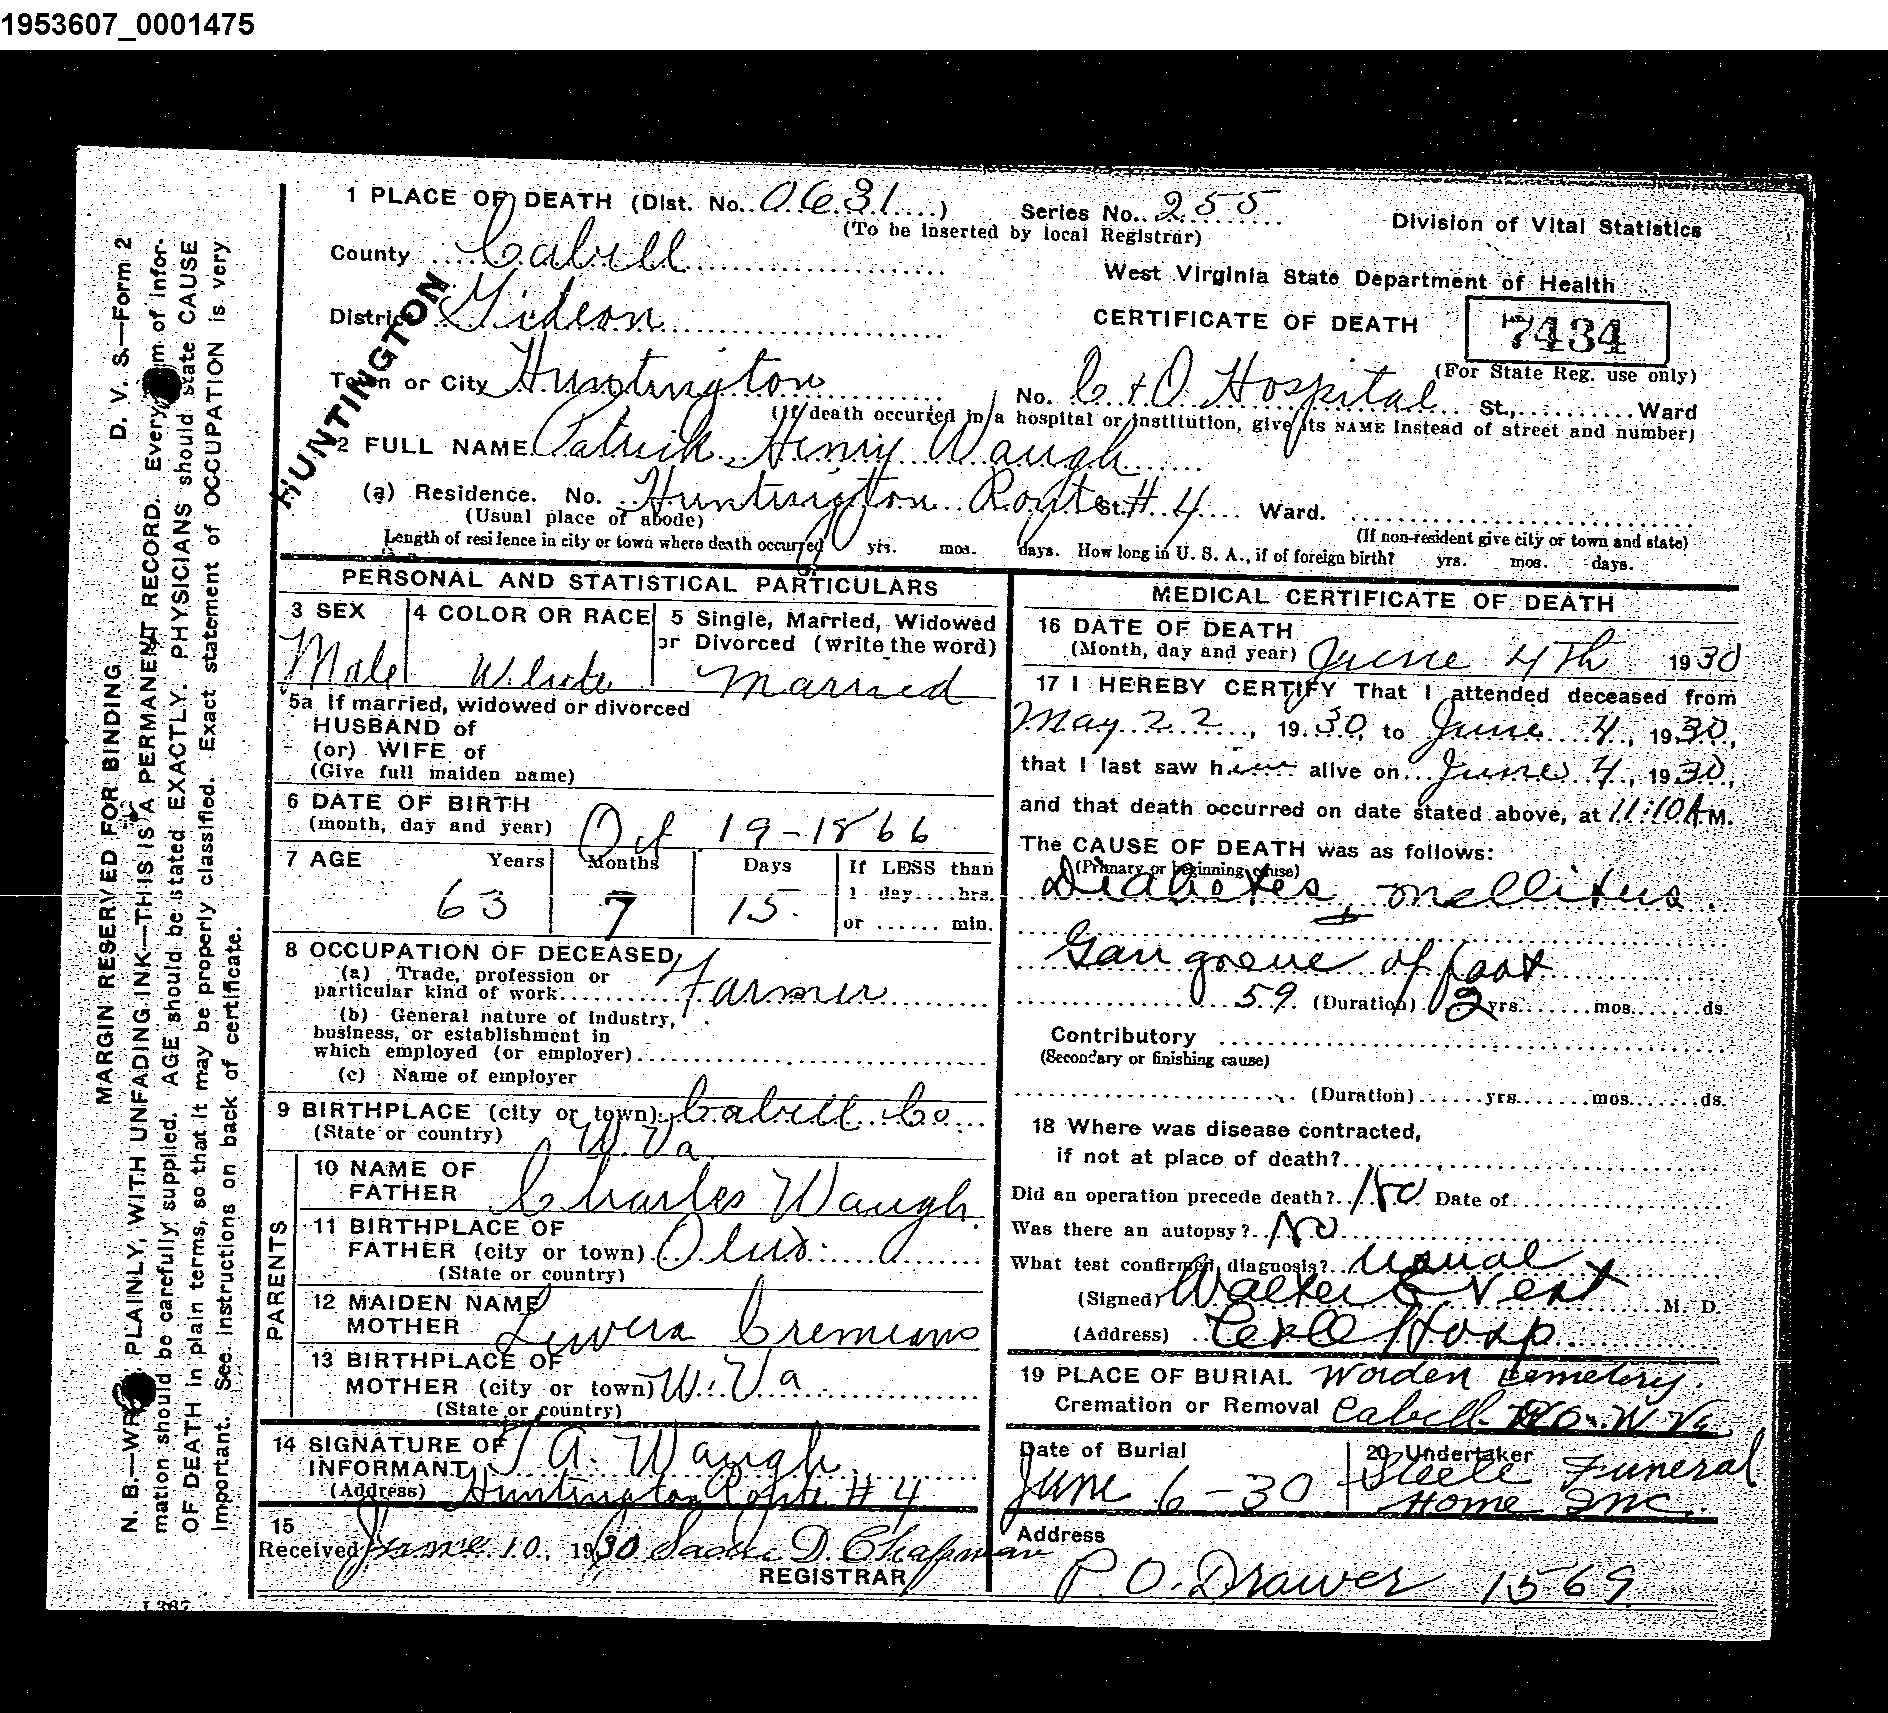 1953607_0001475
1 PLACE OF DEATH (Dist. No. 0631) Series No. 255
(To be inserted by local Registrar)
Division of Vital Statistics
County Cabell
West Virginia State Department of Health
District Gideon
CERTIFICATE OF DEATH
7434
(For State Reg. use only)
HUNTINGTON
Town or City Huntington No. C & O Hospital St., Ward
(If death occurred in a hospital or institution, give its NAME instead of street and number)
2 FULL NAME Patrick Henry Waugh
(a) Residence. No. Huntington Route St. # 4 Ward.
(Usual place of abode) (If non-resident give city or town and state)
Length of residence in city or town where death occurred yrs. mos. days. How long in U. S. A., if of foreign birth? yrs. mos. days.
PERSONAL AND STATISTICAL PARTICULARS
3 SEX 4 COLOR OR RACE 5 Single, Married, Widowed
or Divorced (write the word)
Male White Married
5a If married, widowed or divorced
HUSBAND of
(or) WIFE of
(Give full maiden name)
6 DATE OF BIRTH
(month, day and year) Oct 19-1866
7 AGE Years Months Days If LESS than
1 day....hrs.
63 7 15
or ...... min.
8 OCCUPATION OF DECEASED
(a) Trade, profession or
particular kind of work Farmer
(b) General nature of Industry,
business, or establishment in
which employed (or employer)
(c) Name of employer
9 BIRTHPLACE (city or town) Cabell Co
(State or country) W. Va
PARENTS
10 NAME OF
FATHER Charles Waugh
11 BIRTHPLACE OF
FATHER (city or town) Ohio
(State or country)
12 MAIDEN NAME
MOTHER Luvera Cremeans
13 BIRTHPLACE OF
MOTHER (city or town) W. Va
(State or country)
14 SIGNATURE OF
INFORMANT T A. Waugh
(Address) Huntington Route # 4
15
Received June 10, 1930 D. Chapman
REGISTRAR
MEDICAL CERTIFICATE OF DEATH
16 DATE OF DEATH
(Month, day and year) June 4th 1930
17 I HEREBY CERTIFY That I attended deceased from
May 22, 1930, to June 4, 1930,
that I last saw him alive on June 4, 1930,
and that death occurred on date stated above, at 11:10 A M.
The CAUSE OF DEATH was as follows:
(Primary or beginning cause)
Diabetes, mellitus.
Gangrene of foot
59 (Duration) 2 yrs. mos. ds.
Contributory
(Secondary or finishing cause)
(Duration) yrs. mos. ds.
18 Where was disease contracted,
if not at place of death?
Did an operation precede death? No Date of
Was there an autopsy? No
What test confirmed diagnosis? Usual
(Signed) Walter E Vest M. D.
(Address) C&O Hosp
19 PLACE OF BURIAL Worden Cemetery.
Cremation or Removal Cabell Co. W Va
Date of Burial 20 Undertaker
June 6-30 Steele Funeral
Home Inc.
Address
P.O. Drawer 1569
D. V. S.—Form 2
MARGIN RESERVED FOR BINDING
N.B.—WRITE PLAINLY, WITH UNFADING INK—THIS IS A PERMANENT RECORD. Every item of infor-
mation should be carefully supplied. AGE should be stated EXACTLY. PHYSICIANS should state CAUSE
OF DEATH in plain terms, so that it may be properly classified. Exact statement of OCCUPATION is very
important. See instructions on back of certificate.